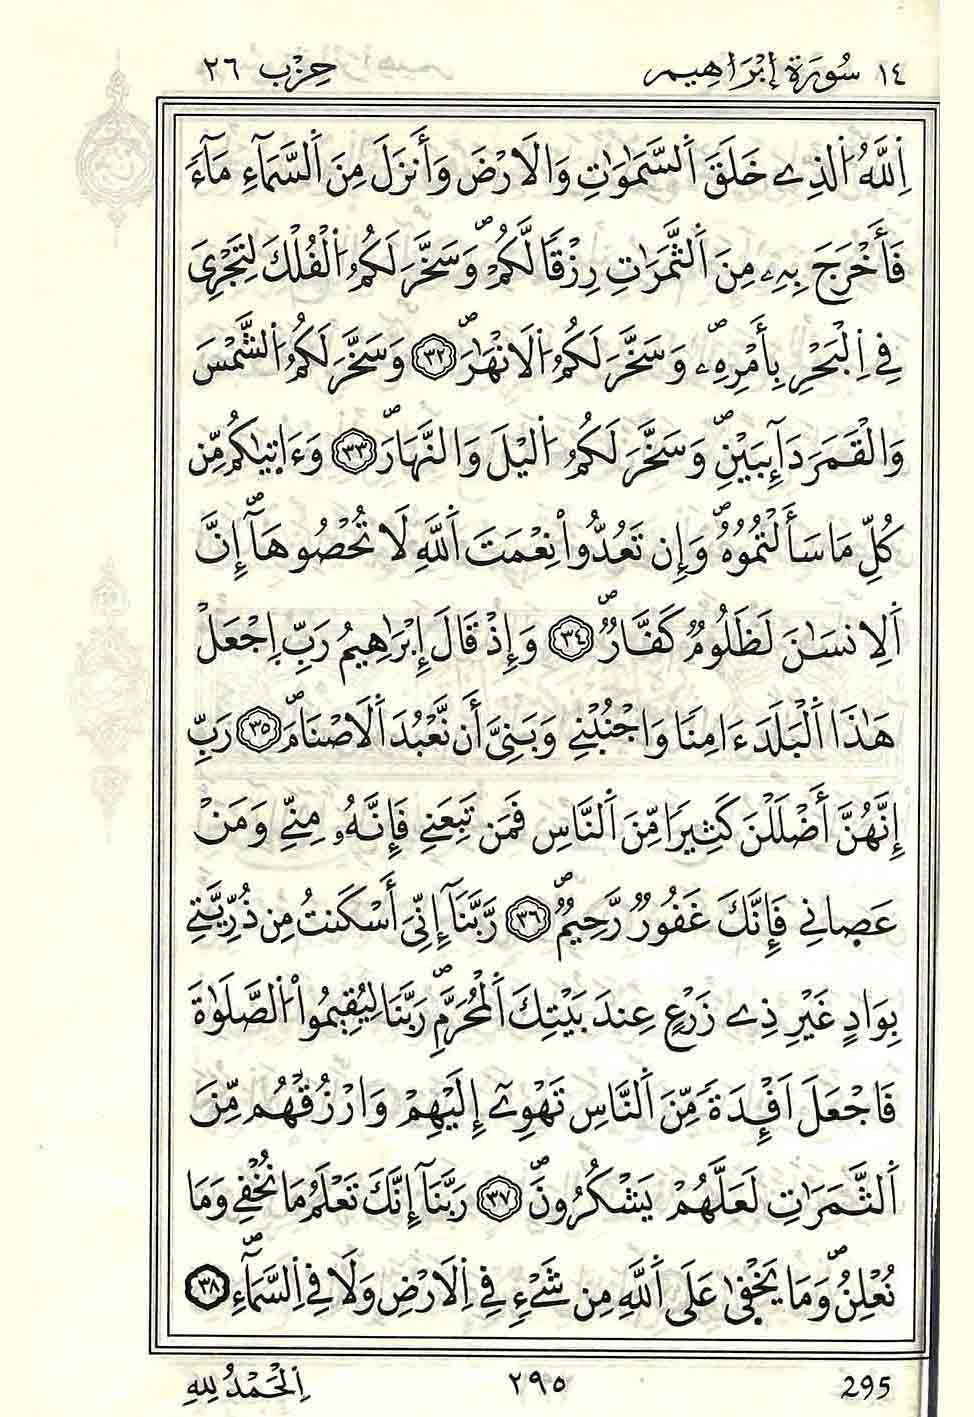 ١٤ سُورَةُ إِبْرَاهِيم حِزْب ٢٦
اَ۬للَّهُ اُ۬لذِے خَلَقَ اَ۬لسَّمَٰوَٰتِ وَالَارْضَ وَأَنزَلَ مِنَ اَ۬لسَّمَآءِ مَآءٗ
فَأَخْرَجَ بِهِۦ مِنَ اَ۬لثَّمَرَٰتِ رِزْقاٗ لَّكُمْۖ وَسَخَّرَ لَكُمُ اُ۬لْفُلْكَ لِتَجْرِيَ
فِے اِ۬لْبَحْرِ بِأَمْرِهِۦۖ وَسَخَّرَ لَكُمُ اُ۬لَانْهَٰرَۖ ٣٢ وَسَخَّرَ لَكُمُ اُ۬لشَّمْسَ
وَالْقَمَرَ دَآئِبَيْنِۖ وَسَخَّرَ لَكُمُ اُ۬ليْلَ وَالنَّهَارَۖ ٣٣ وَءَات۪يٰكُم مِّن
كُلِّ مَا سَأَلْتُمُوهُۖ وَإِن تَعُدُّواْ نِعْمَتَ اَ۬للَّهِ لَا تُحْصُوهَآۖ إِنَّ
اَ۬لِانسَٰنَ لَظَلُومٞ كَفَّارٞۖ ٣٤ وَإِذْ قَالَ إِبْرَٰهِيمُ رَبِّ اِ۪جْعَلْ
هَٰذَا اَ۬لْبَلَدَ ءَامِناٗ وَاجْنُبْنِے وَبَنِيَّ أَن نَّعْبُدَ اَ۬لَاصْنَامَۖ ٣٥ رَبِّ
إِنَّهُنَّ أَضْلَلْنَ كَثِيراٗ مِّنَ اَ۬لنَّاسِ فَمَن تَبِعَنِے فَإِنَّهُۥ مِنِّے وَمَنْ
عَصَانِے فَإِنَّكَ غَفُورٞ رَّحِيمٞۖ ٣٦ رَّبَّنَآ إِنِّيَ أَسْكَنتُ مِن ذُرِّيَّتِے
بِوَادٍ غَيْرِ ذِے زَرْعٍ عِندَ بَيْتِكَ اَ۬لْمُحَرَّمِۖ رَبَّنَا لِيُقِيمُواْ اُ۬لصَّلَوٰةَ
فَاجْعَلَ اَفْـِٕدَةٗ مِّنَ اَ۬لنَّاسِ تَهْوِےٓ إِلَيْهِمْ وَارْزُقْهُم مِّنَ
اَ۬لثَّمَرَٰتِ لَعَلَّهُمْ يَشْكُرُونَۖ ٣٧ رَبَّنَآ إِنَّكَ تَعْلَمُ مَا نُخْفِے وَمَا
نُعْلِنُۖ وَمَا يَخْفَىٰ عَلَى اَ۬للَّهِ مِن شَےْءٖ فِے اِ۬لَارْضِ وَلَا فِے اِ۬لسَّمَآءِۖ ٣٨
اِ۬لْحَمْدُ لِلهِ ٢٩٥ 295